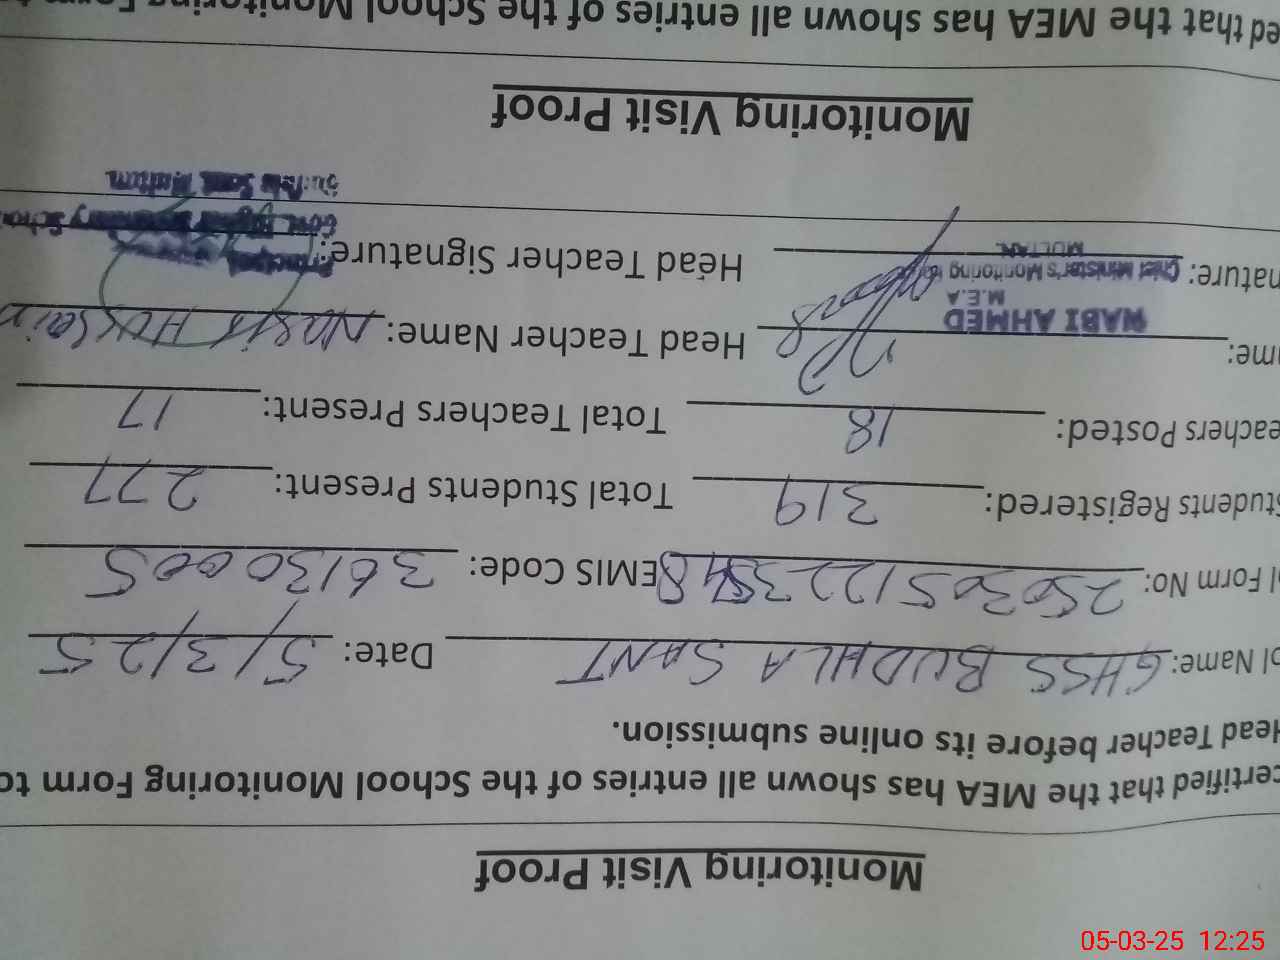 Monitoring Visit Proof
certified that the MEA has shown all entries of the School Monitoring Form to
Head Teacher before its online submission.
ol Name: GHSS BUDHLA SANT Date: 5/3/25
ol Form No: EMIS Code: 36130005
Students Registered: 319 Total Students Present: 277
eachers Posted: 18 Total Teachers Present: 17
ame: NABI AHMED Head Teacher Name: Hussain
M.E.A
nature: Chief Minister's Monitoring Head Teacher Signature: Principal
MULTAN. Govt. Higher Secondary School
Sant, Multan
Monitoring Visit Proof
ed that the MEA has shown all entries of the School Monitoring Form to
05-03-25 12:25